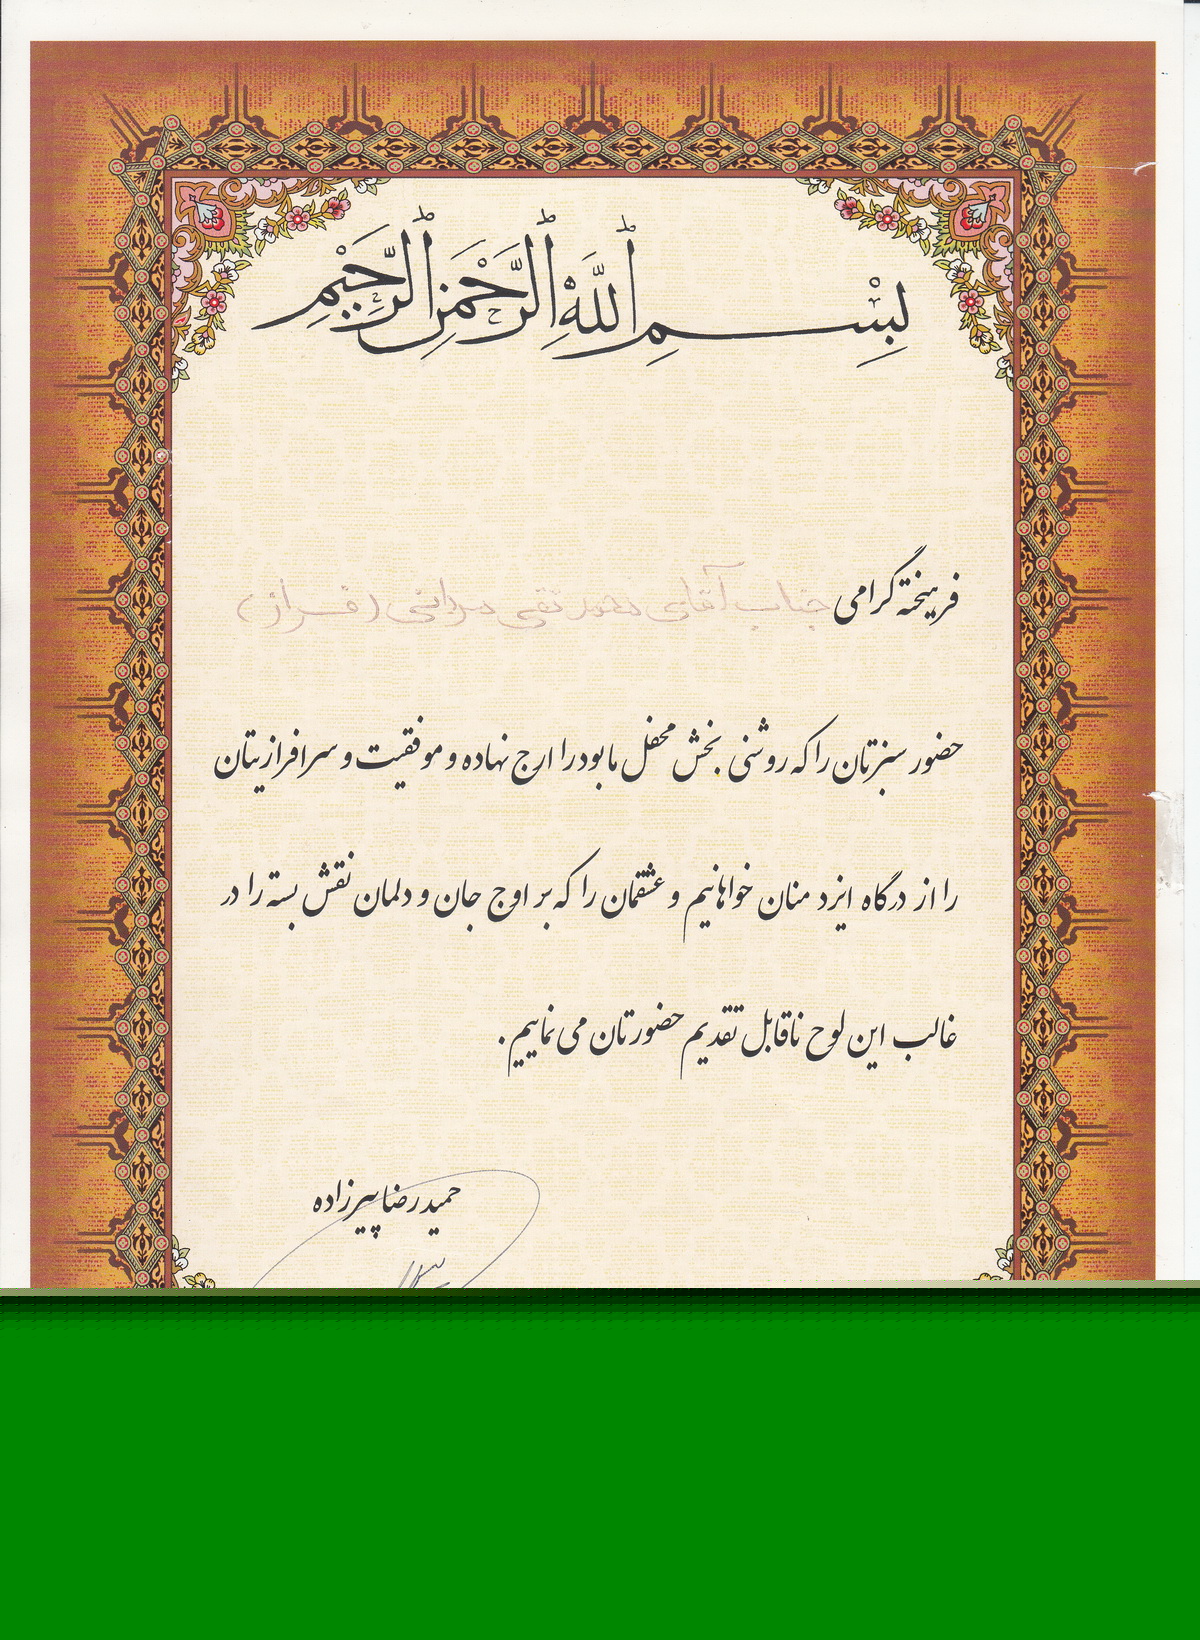 بِسْمِ اللَّهِ الرَّحْمَنِ الرَّحِيمِ
فرهیخته گرامی جناب آقای محمد تقی مردانی (فراز)
حضور سبزتان را که روشنی بخش محفل ما بود را ارج نهاده و موفقیت و سرافرازیتان
را از درگاه ایزد منان خواهانیم و عشقمان را که بر اوج جان و دلمان نقش بسته را در
غالب این لوح ناقابل تقدیم حضورتان می نماییم.
حمیدرضا پیرزاده